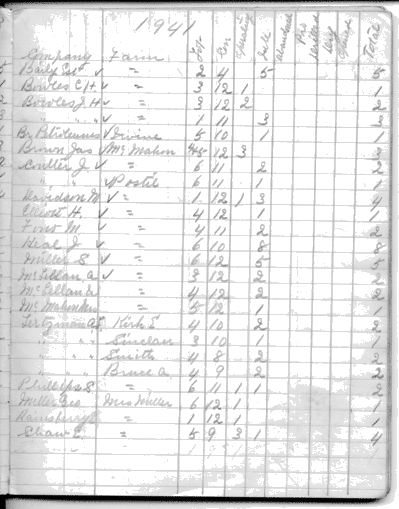 1941
Company Farm Lot Con Operating Sell Abandoned Total
Baily Est ✓ " 2 4 5 5
Bowles C H ✓ " 3 12 1 1
Bowles J H ✓ " 3 12 2 2
" " " ✓ " 1 11 3 3
Br Petroleums ✓ Irvine 5 10 1 1
Brown Jas ✓ Mc Mahon 4&5 12 3
Coulter J ✓ " 6 11 2 2
" " ✓ Postil 6 11 1 1
Davidson M ✓ " 1 12 1 3 4
Elliott H ✓ " 4 12 1 1
Font M ✓ " 4 11 2 2
Heal J ✓ " 6 10 8 8
Miller S ✓ " 6 12 5 5
Mc Lellan A ✓ " 3 12 2 2
Mc Lellan " 4 12 2 2
Mc " 5 12 1 1
Kirk E 4 10 2 2
" " " Sinclair 3 10 1 1
" " " Smith 4 8 2 2
" " " Bruce A 4 9 2 2
Phillips S " 6 11 1 1 2
Miller Geo Mrs Miller 6 12 1 1
Rainsbury " 1 12 1 1
Shaw E " 5 9 3 1 4